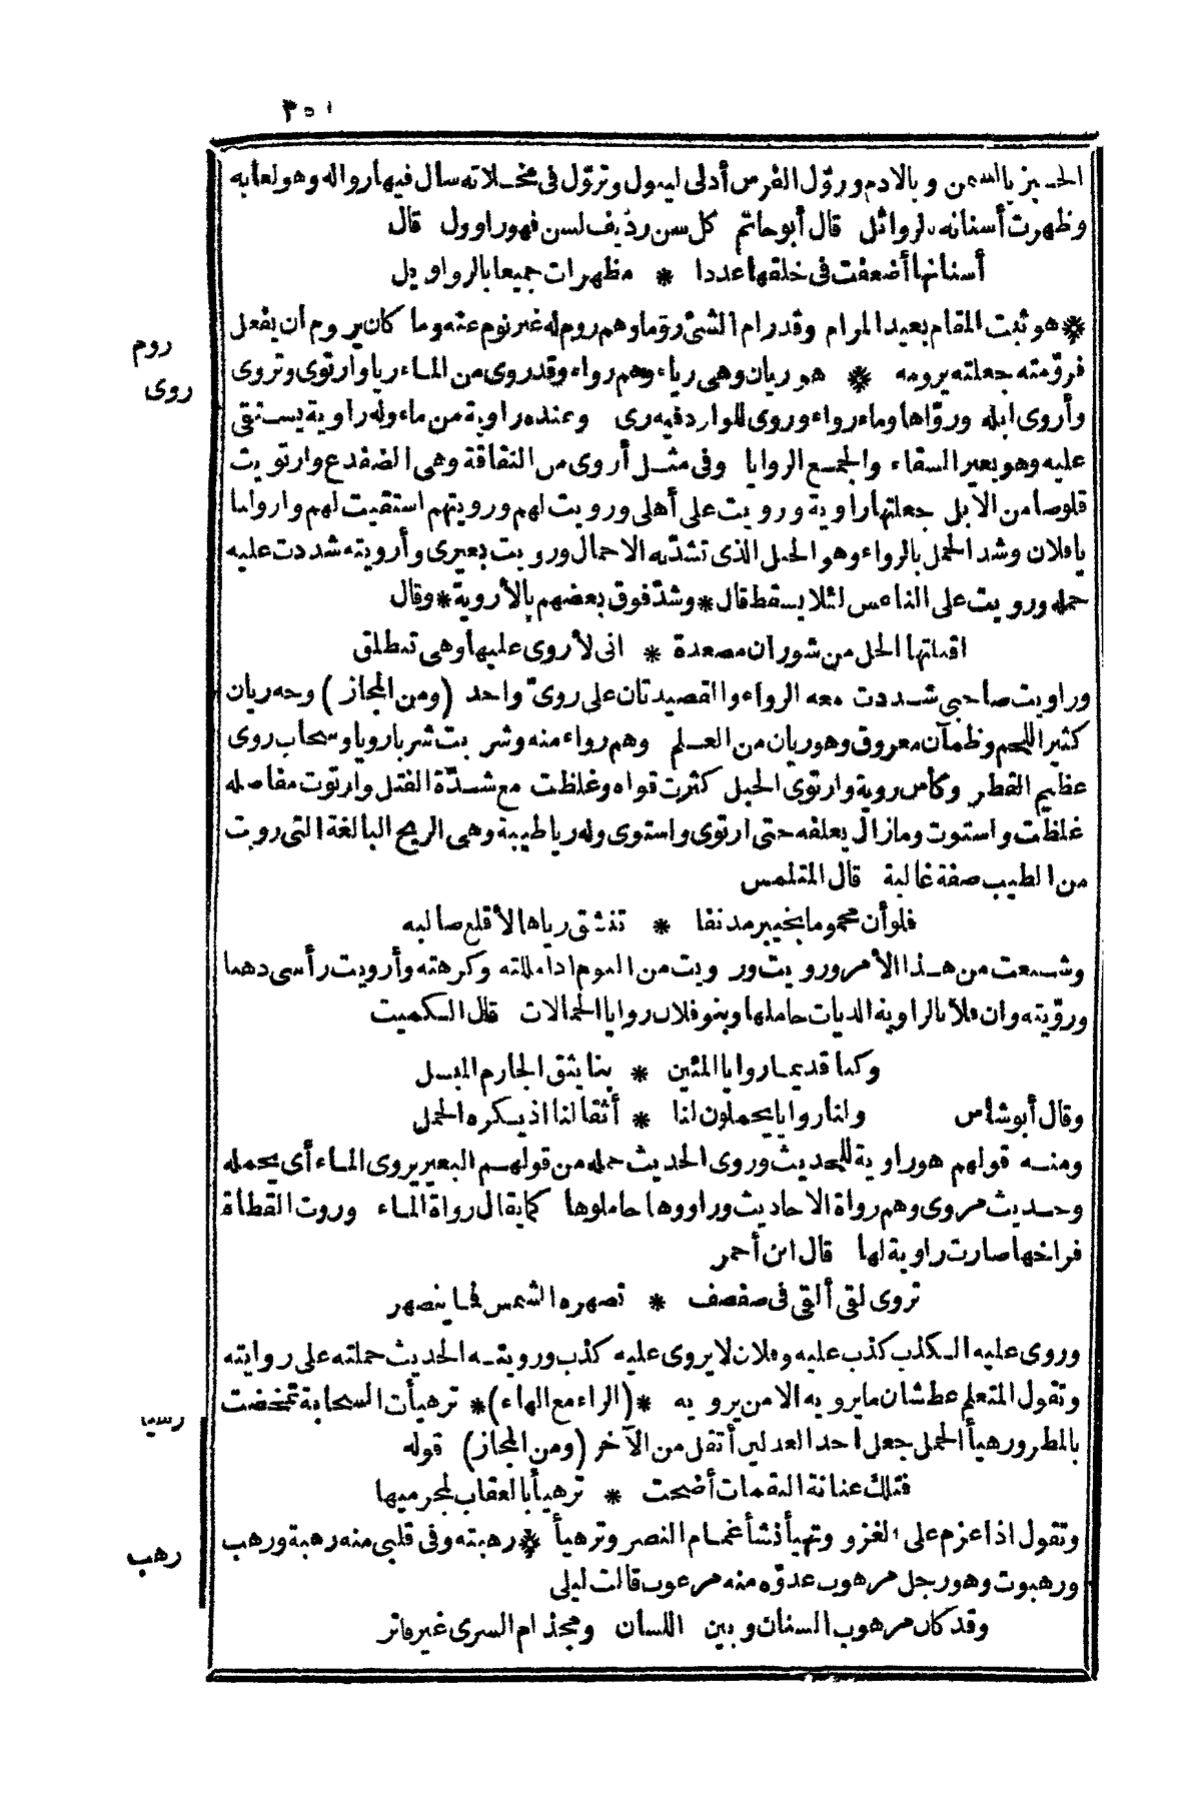 ٣٥١
الخبز بالسمن وبالادم وروّل الفرس أدلى ليبول وتروّل فى مخلاته سال فيها رواله وهو لعابه
وظهرت أسنانه الروائل قال أبو حاتم كل سن رديف لسن فهو راوول قال
أسنانها أضعفت فى خلقها عددا * مظهرات جميعا بالرواويل
* هو ثبت المقام بعيد المرام وقد رام الشئ روما وهم روم له غير نوم عنه وما كان يروم أن يفعل
روم
فروّمته جعلته يرومه * هو ريان وهى رياء وهم رواء وقد روى من الماء ريا وارتوى وتروى
روى
وأروى ابله وروّاها وماء رواء وروى للوارد فيه رى وعنده راوية من ماء وله راوية يستقى
عليه وهو بعير السقاء والجمع الروايا وفى مثل أروى من النقاقة وهى الضفدع وارتويت
قلوصا من الابل جعلتها راوية ورويت على أهلى ورويت لهم ورويتهم استقيت لهم وارو لنا
يا فلان وشد الحمل بالرواء وهو الحبل الذى تشدّ به الاحمال ورويت بعيرى وأرويته شددت عليه
حمله ورويت على الناعس لئلا يسقط قال * وشدّ فوق بعضهم بالأروية * وقال
اقبلتها الخل من شوران مصعدة * انى لأروى عليها وهى تنطلق
وراويت صاحبى شددت معه الرواء والقصيدتان على روىّ واحد (ومن المجاز) وجه ريان
كثير اللحم وظمآن معروق وهو ريان من العلم وهم رواء منه وشربت شربا رويا وسحاب روى
عظيم القطر وكأس روية وارتوى الحبل كثرت قواه وغلظت مع شدّة الفتل وارتوت مفاصله
غلظت واستوت وما زال يعلفه حتى ارتوى واستوى وله ريا طيبة وهى الريح البالغة التى رويت
من الطيب صفة غالبة قال المتلمس
فلو أن محموما بخيبر مدنفا * تنشق رياها لأقلع صالبه
وشبعت من هذا الأمر ورويت ورويت من النوم اذا مللته وكرهته وأرويت رأسى دهنا
وروّيته وان فلانا لراوية الديات حاملها وبنو فلان روايا الحمالات قال الكميت
وكنا قديما روايا المئين * بنا يثق الجارم المبسل
وقال أبو شاس ولنا روايا يحملون لنا * أثقالنا اذ يكره الحمل
ومنه قولهم هو راوية للحديث وروى الحديث حمله من قولهم البعير يروى الماء أى يحمله
وحديث مروى وهم رواة الاحاديث وراووها حاملوها كما يقال رواة الماء وروت القطاة
فراخها صارت راوية لها قال ابن أحمر
تروى لقى ألقى فى صفصف * تصهره الشمس فما ينصهر
وروى عليه الكذب كذب عليه وفلان لا يروى عليه كذب ورويته الحديث حملته على روايته
وتقول المتعلم عطشان ما يرويه الا من يرويه * (الراء مع الهاء) * ترهيأت السحابة تمخضت
رهيأ
بالمطر ورهيأ الحمل جعل احد العدلين أثقل من الآخر (ومن المجاز) قوله
فتلك عنانة النقمات أضحت * ترهيأ بالعقاب لمجرميها
وتقول اذا عزم على الغزو وتهيأ نشأ غمام النصر وترهيأ * رهبته وفى قلبى منه رهبة ورهب
رهب
ورهبوت وهو رجل مرهوب عدوّه منه مرعوب قالت ليلى
وقد كان مرهوب السنان وبين اللسان ومجذام السرى غير فاتر